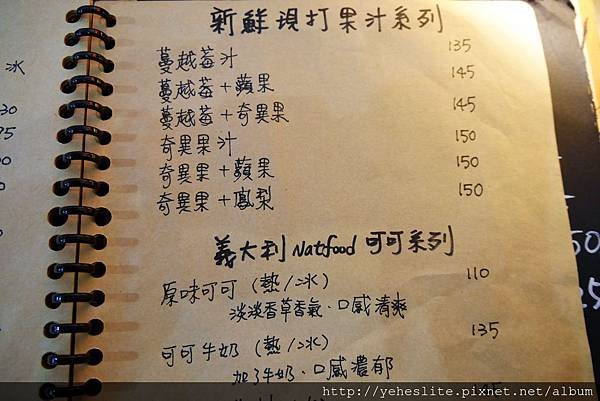 新鮮現打果汁系列
蔓越莓汁 135
蔓越莓+蘋果 145
蔓越莓+奇異果 145
奇異果汁 150
奇異果+蘋果 150
奇異果+鳳梨 150
義大利 Natfood 可可系列
原味可可 (熱/冰) 110
淡淡香草香氣、口感清爽
可可牛奶 (熱/冰) 135
加了牛奶、口感濃郁
冰
http://yeheslite.pixnet.net/album